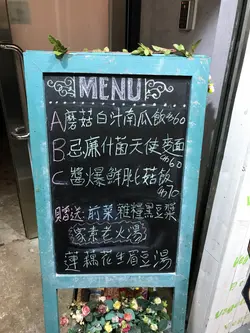 MENU
A蘑菇白汁南瓜飯$60
B忌廉什菌天使麵
$60
C醬爆鮮肶菇飯$70
贈送:前菜雜糧黑豆漿
家素老火湯
蓮藕花生眉豆湯